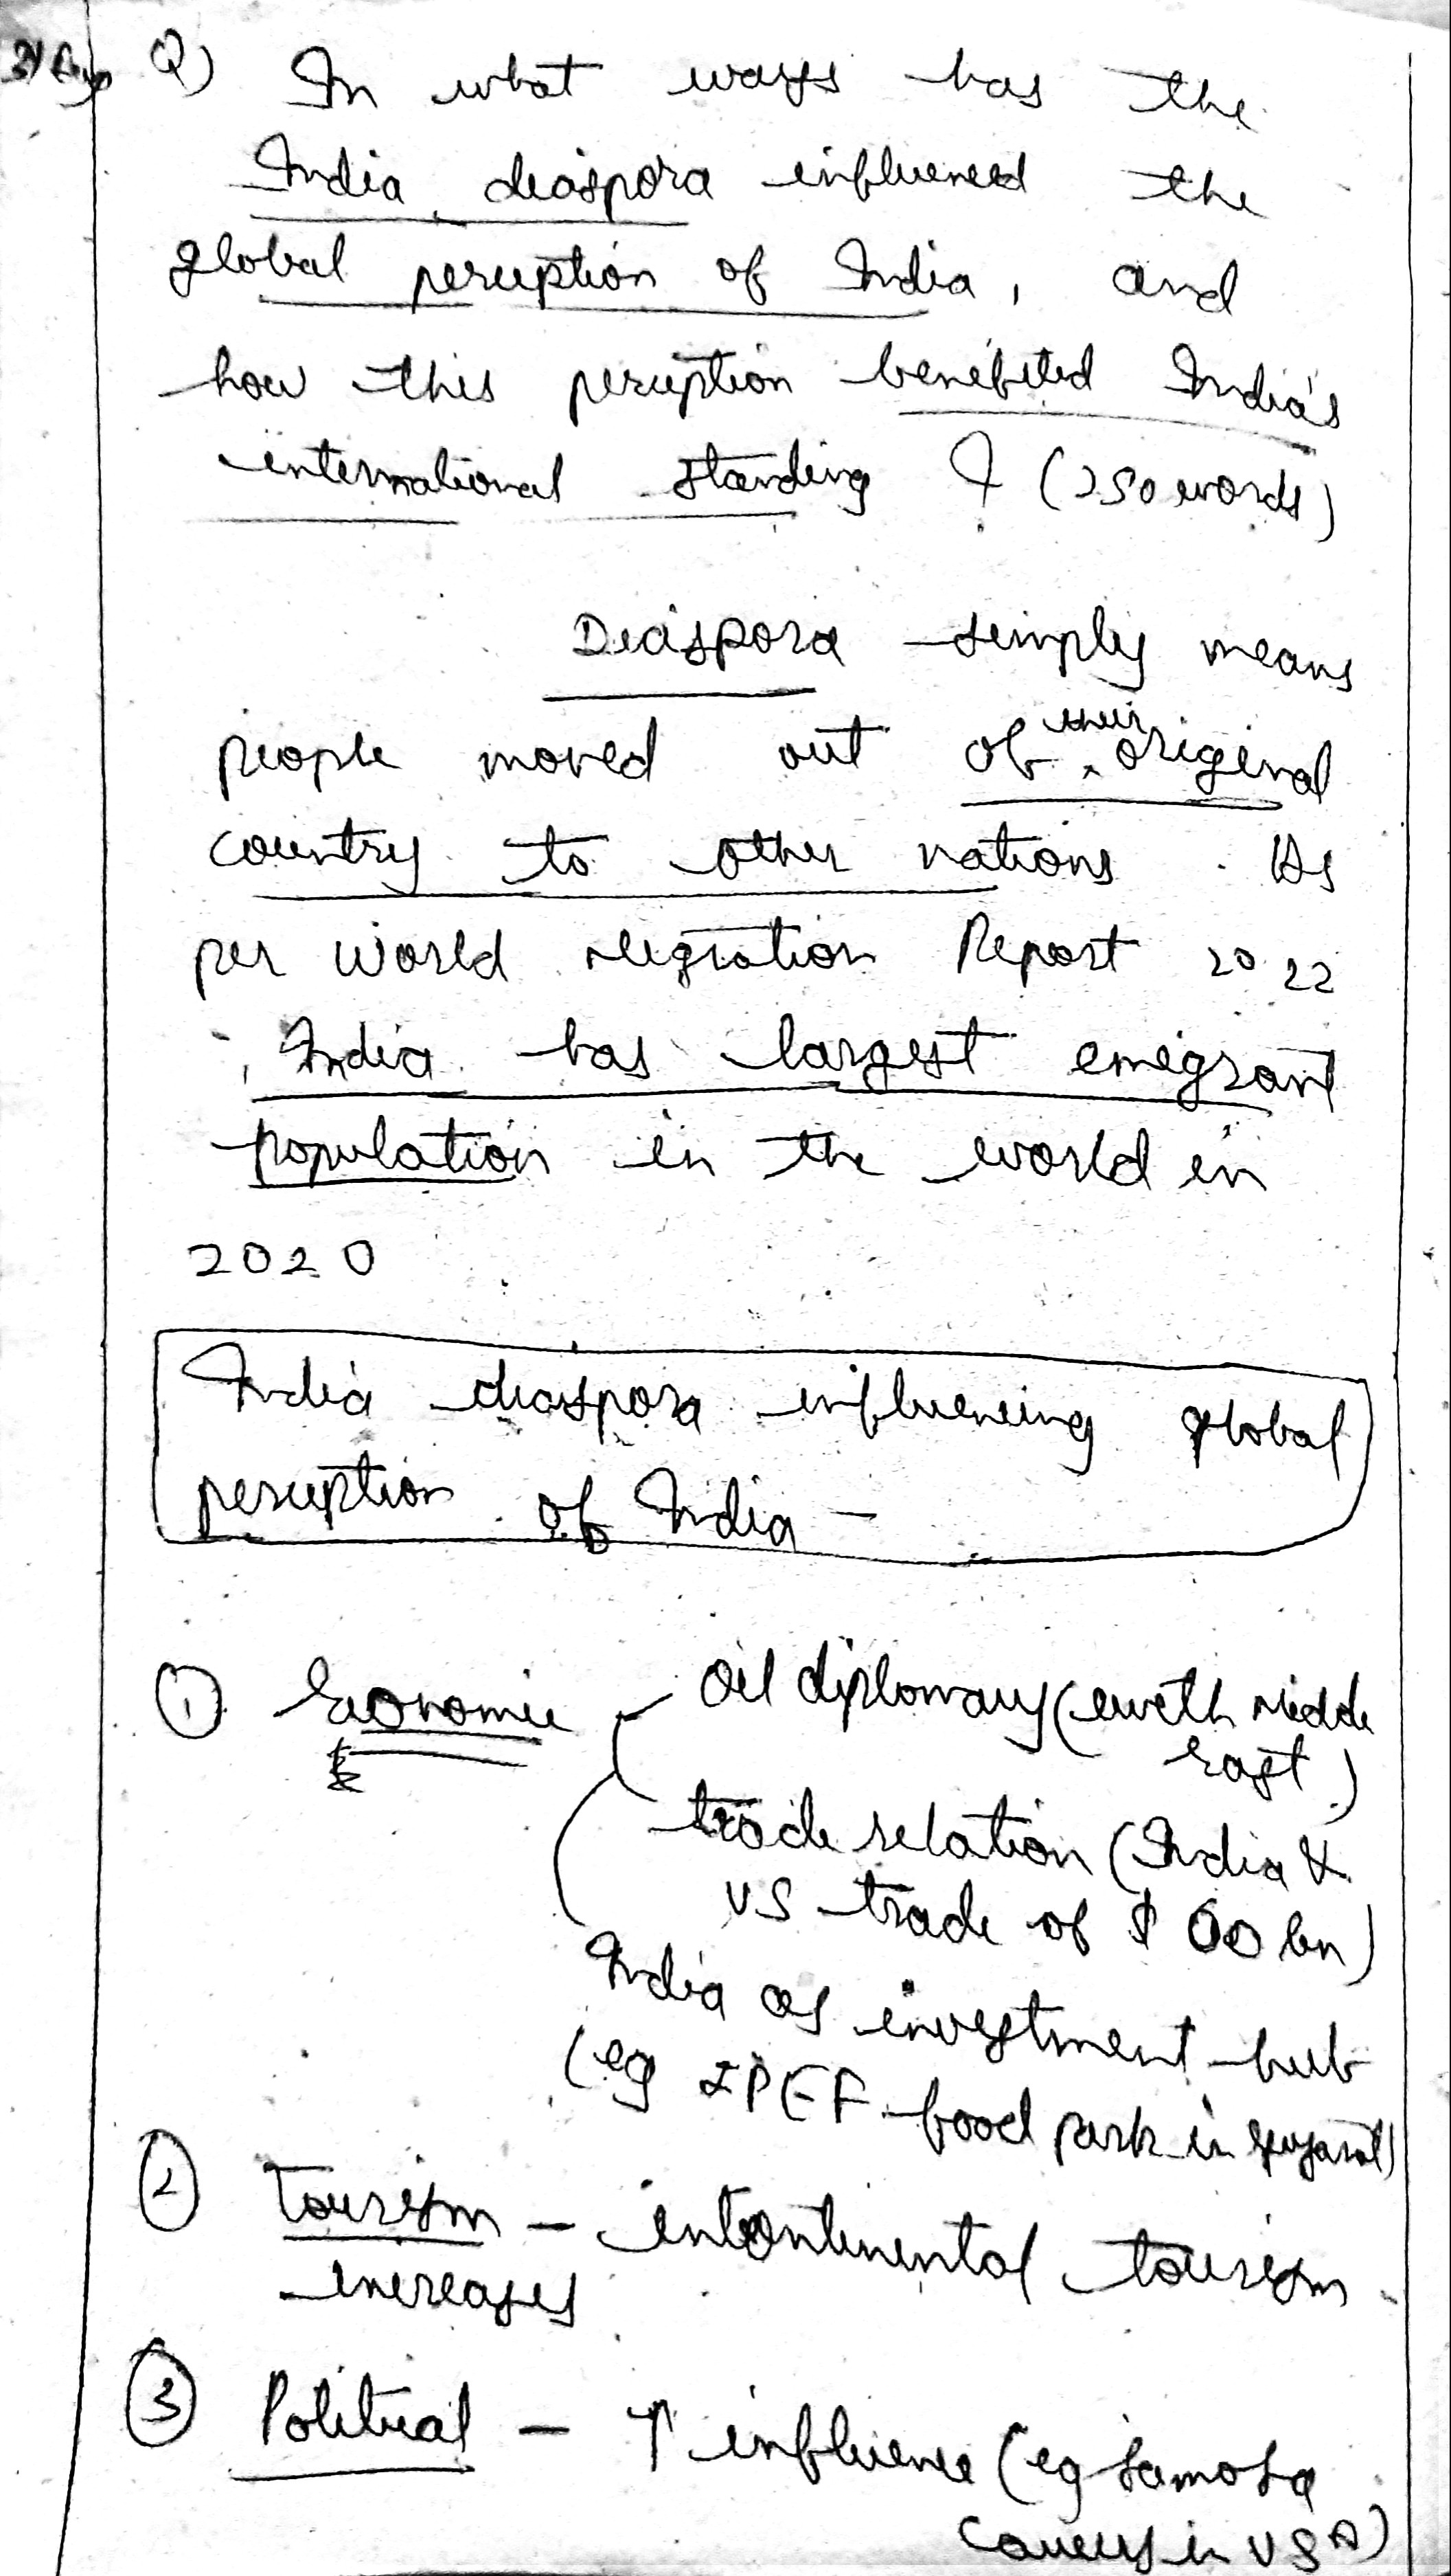 31 Aug
Q) In what ways has the
India diaspora influenced the
global perception of India, and
how this perception benefited India's
international standing ? (250 words)
Diaspora simply means
people moved out of their original
country to other nations. As
per World Migration Report 2022
, India has largest emigrant
population in the world in
2020
India diaspora influencing global
perception of India -
① Economic - Oil diplomacy (with Middle
East)
trade relation (India &
US trade of $ 60 bn)
India as investment hub
(eg IPEF food park in Gujarat)
② Tourism - intcontinental tourism
increases
③ Political - ↑ influence (eg Samosa
Caucus in USA)